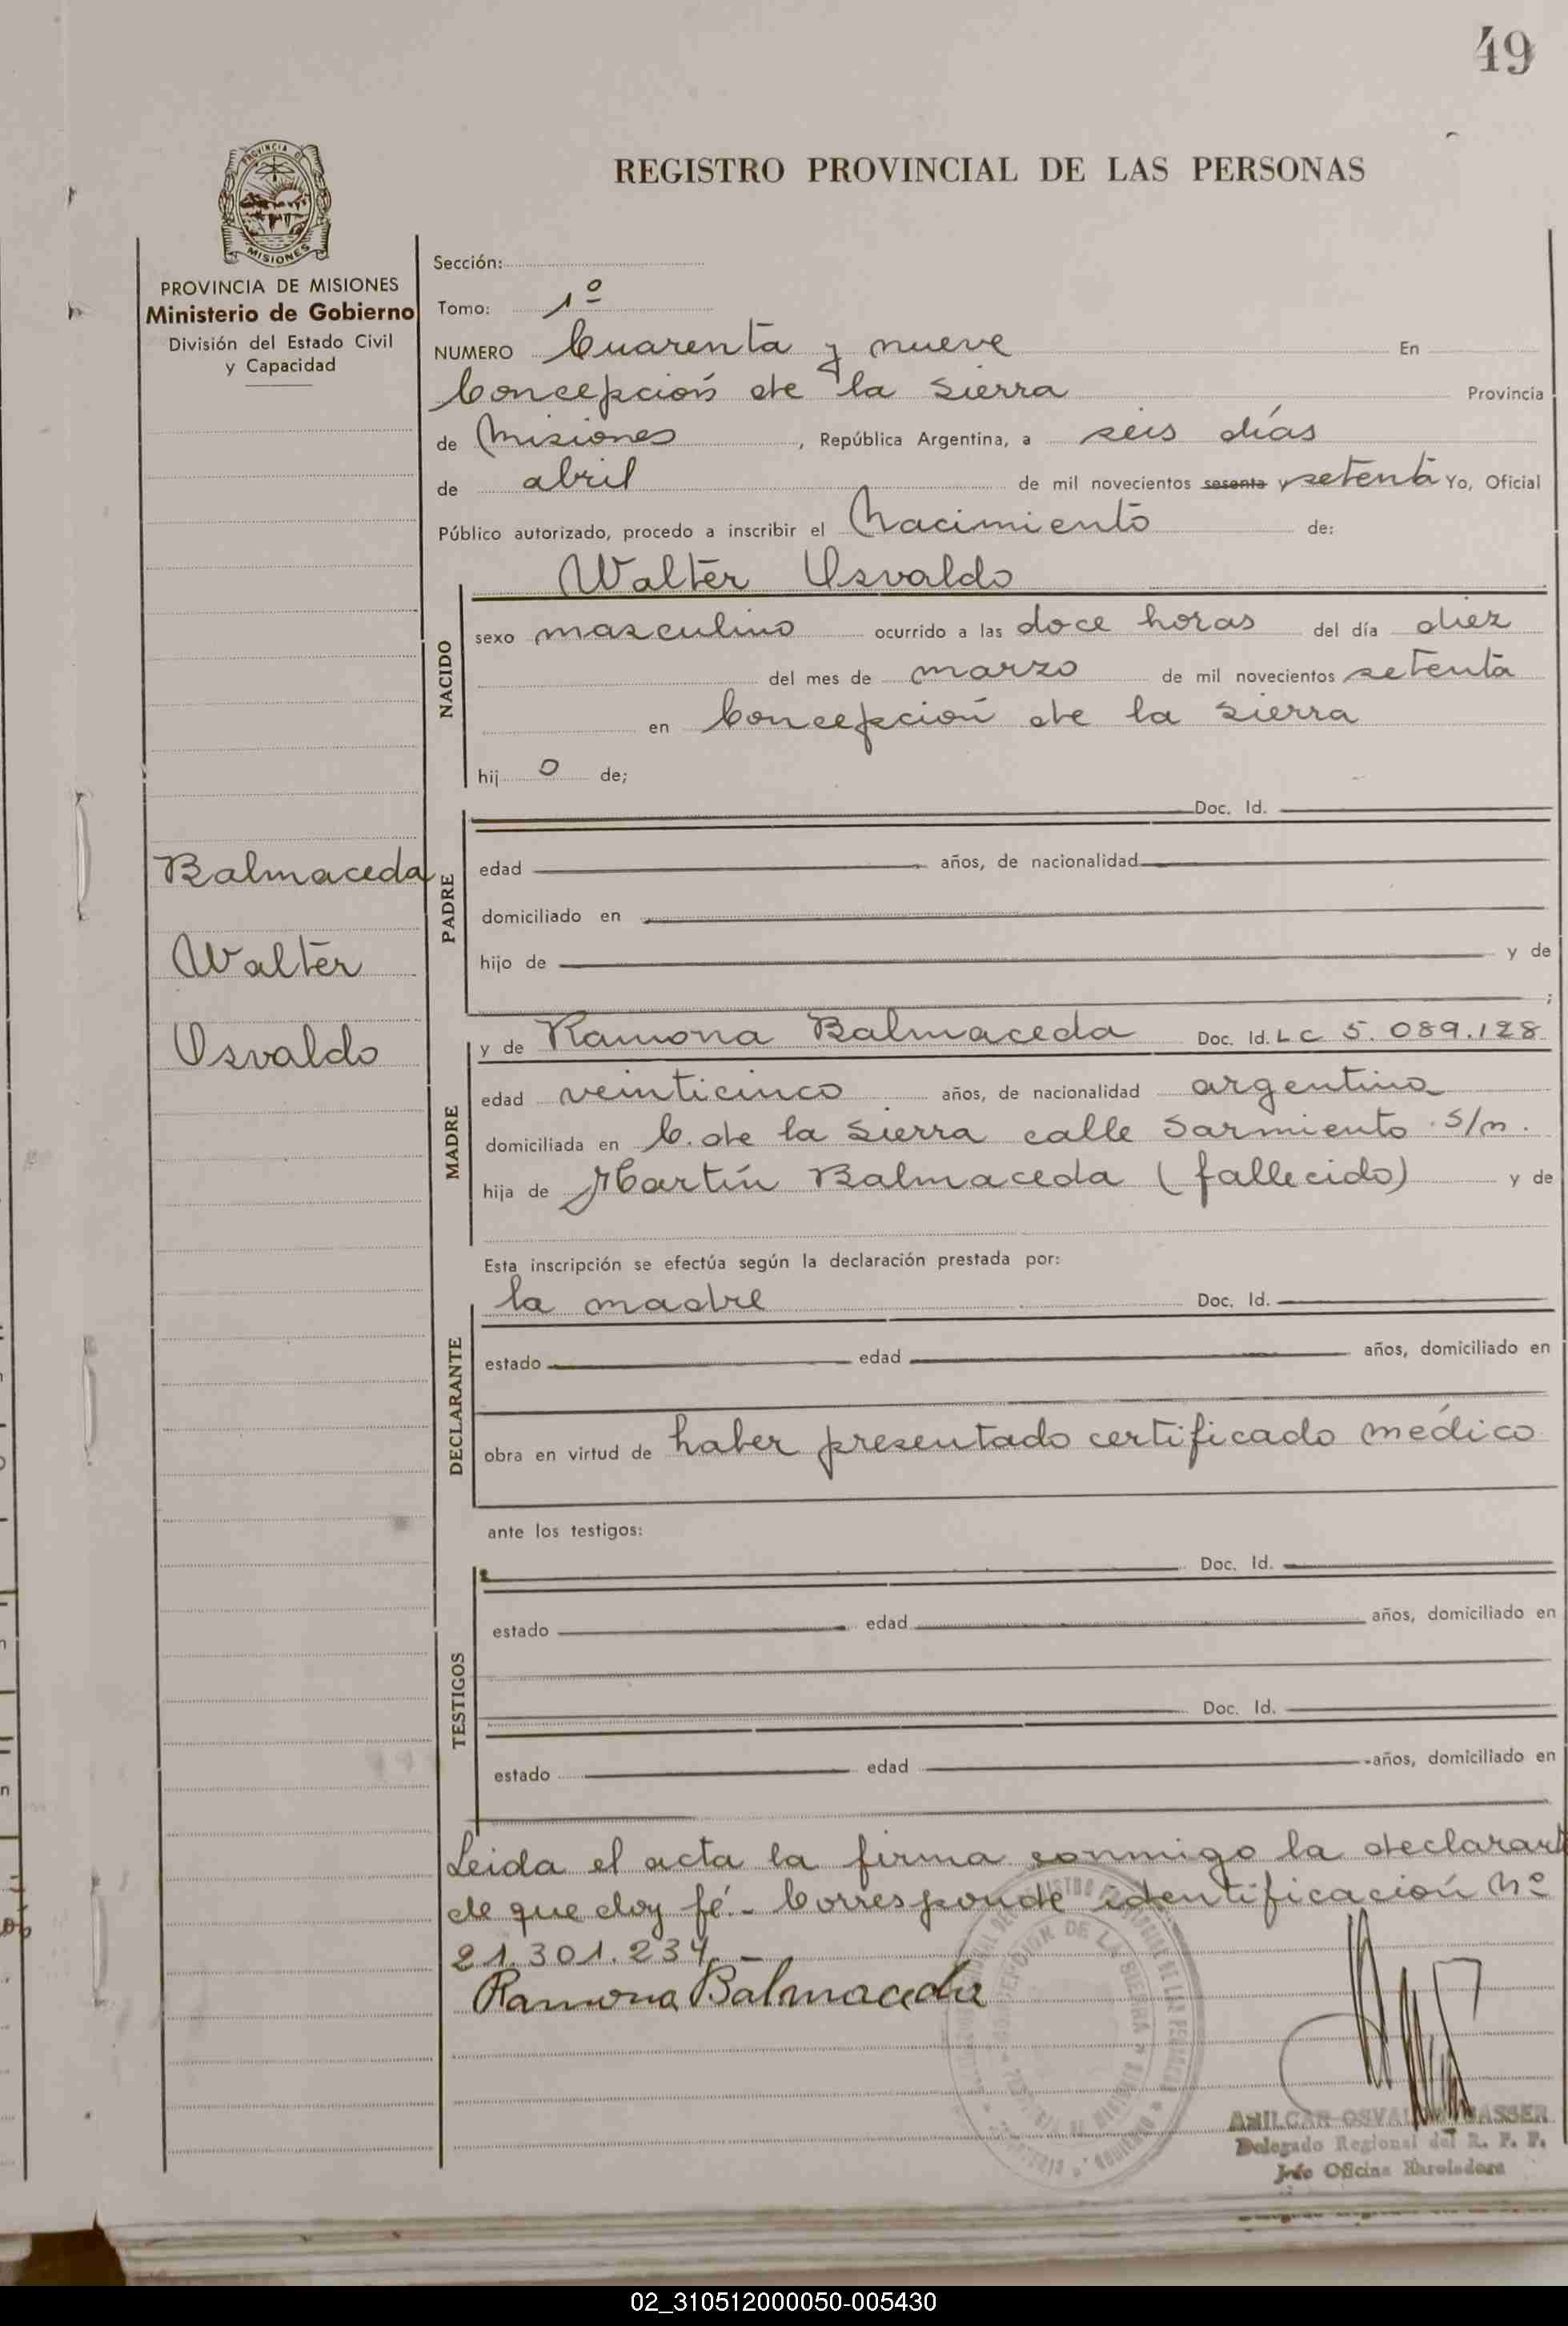 49
REGISTRO PROVINCIAL DE LAS PERSONAS
PROVINCIA DE MISIONES
Ministerio de Gobierno
División del Estado Civil
y Capacidad
Balmaceda
Walter
Osvaldo
Sección:
Tomo: 1º
NUMERO Cuarenta y nueve En
Concepción de la Sierra Provincia
de Misiones, República Argentina, a seis días
de abril de mil novecientos sesenta y setenta Yo, Oficial
Público autorizado, procedo a inscribir el Nacimiento de:
NACIDO
Walter Osvaldo
sexo masculino ocurrido a las doce horas del día diez
del mes de marzo de mil novecientos setenta
en Concepción de la Sierra
hij o de;
PADRE
Doc. Id.
edad años, de nacionalidad
domiciliado en
hijo de y de
;
MADRE
y de Ramona Balmaceda Doc. Id. LC 5.089.128
edad veinticinco años, de nacionalidad argentina
domiciliada en C. de la Sierra calle Sarmiento s/n.
hija de Martín Balmaceda (fallecido) y de
Esta inscripción se efectúa según la declaración prestada por:
DECLARANTE
la madre Doc. Id.
estado edad años, domiciliado en
obra en virtud de haber presentado certificado médico
ante los testigos:
TESTIGOS
Doc. Id.
estado edad años, domiciliado en
Doc. Id.
estado edad años, domiciliado en
Leida el acta la firma conmigo la declarant
de que doy fé.- Corresponde identificación Nº
21.301.234.-
Ramona Balmaceda
Delegado Regional del R. P. P.
Jefe Oficina Enroladora
02_310512000050-005430